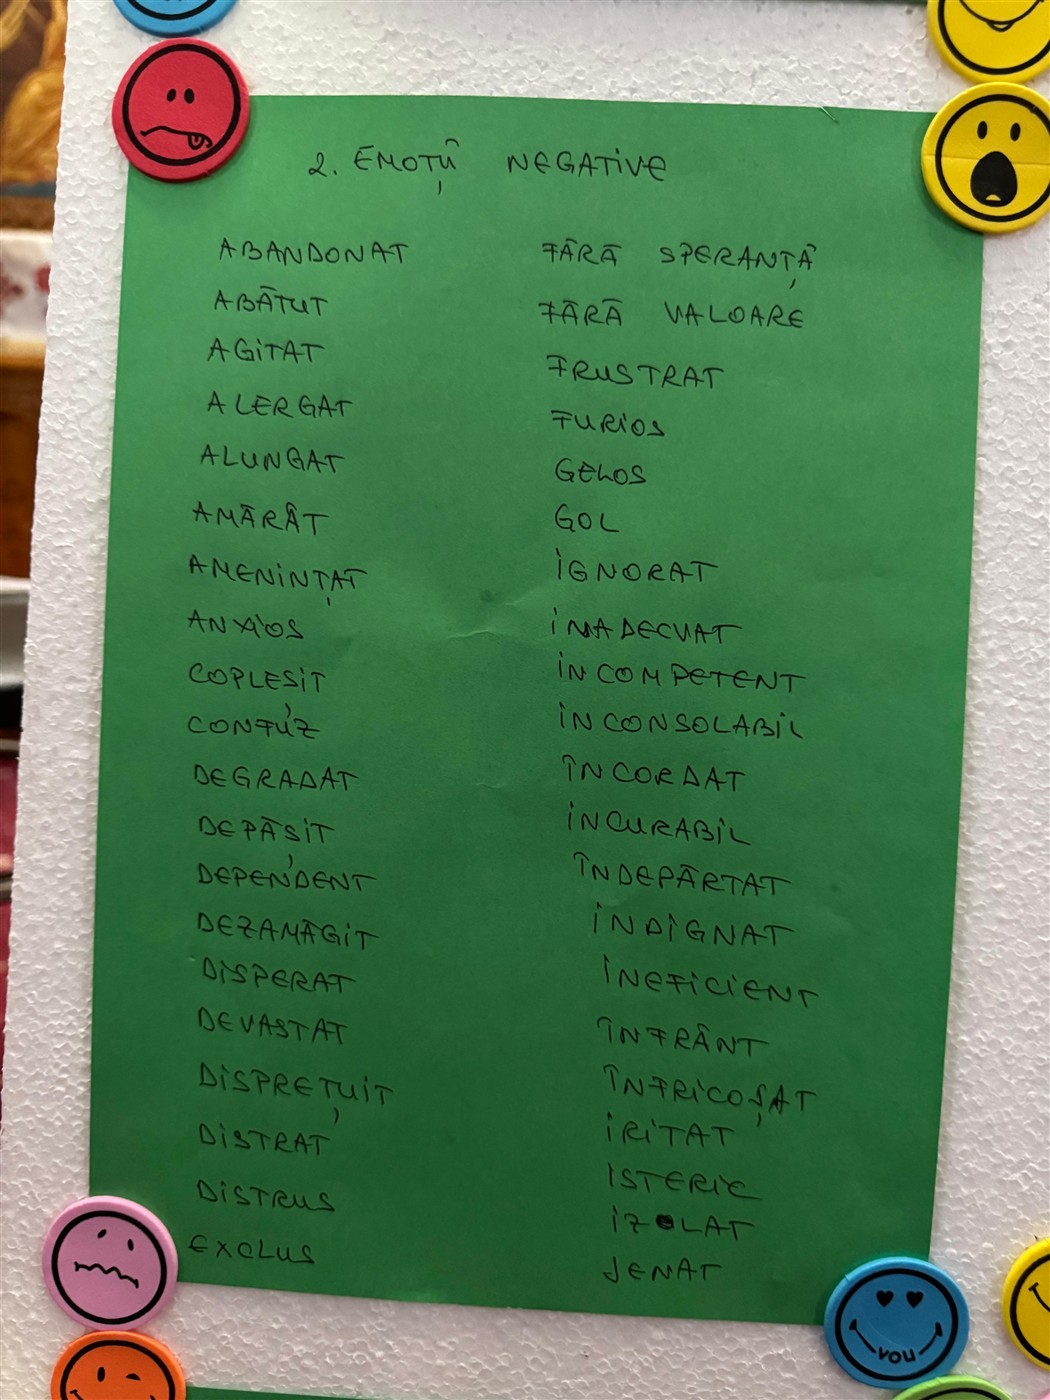 2. EMOȚII NEGATIVE
ABANDONAT
ABĂTUT
AGITAT
ALERGAT
ALUNGAT
AMĂRÂT
AMENINȚAT
ANXIOS
COPLEȘIT
CONFUZ
DEGRADAT
DEPĂȘIT
DEPENDENT
DEZAMĂGIT
DISPERAT
DEVASTAT
DISPREȚUIT
DISTRAT
DISTRUS
EXCLUS
FĂRĂ SPERANȚĂ
FĂRĂ VALOARE
FRUSTRAT
FURIOS
GELOS
GOL
IGNORAT
INADECVAT
INCOMPETENT
INCONSOLABIL
ÎNCORDAT
INCURABIL
ÎNDEPĂRTAT
INDIGNAT
INEFICIENT
ÎNFRÂNT
ÎNFRICOȘAT
IRITAT
ISTERIC
IZOLAT
JENAT
YOU